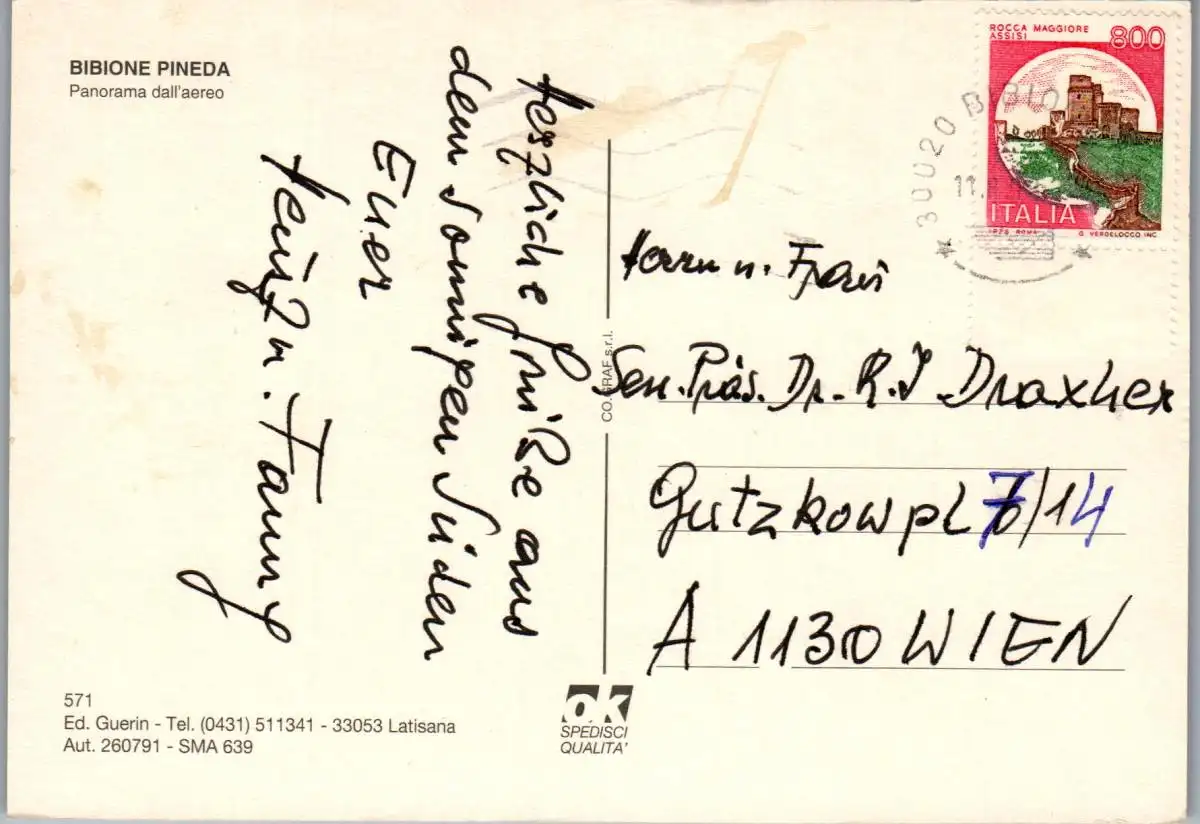 BIBIONE PINEDA
Panorama dall'aereo
Herzliche Grüße aus
dem sonnigen Süden
Euer
Heinz u. Fanny
ROCCA MAGGIORE
ASSISI
800
ITALIA
ROMA
G. VERDELOCCO INC.
30020 BIBIO
11.
Herrn u. Frau
Sen. Präs. Dr. R. J. Draxler
Gutzkowpl 7/14
A 1130 WIEN
CO.GRAF s.r.l.
571
Ed. Guerin - Tel. (0431) 511341 - 33053 Latisana
Aut. 260791 - SMA 639
ok
SPEDISCI
QUALITA'